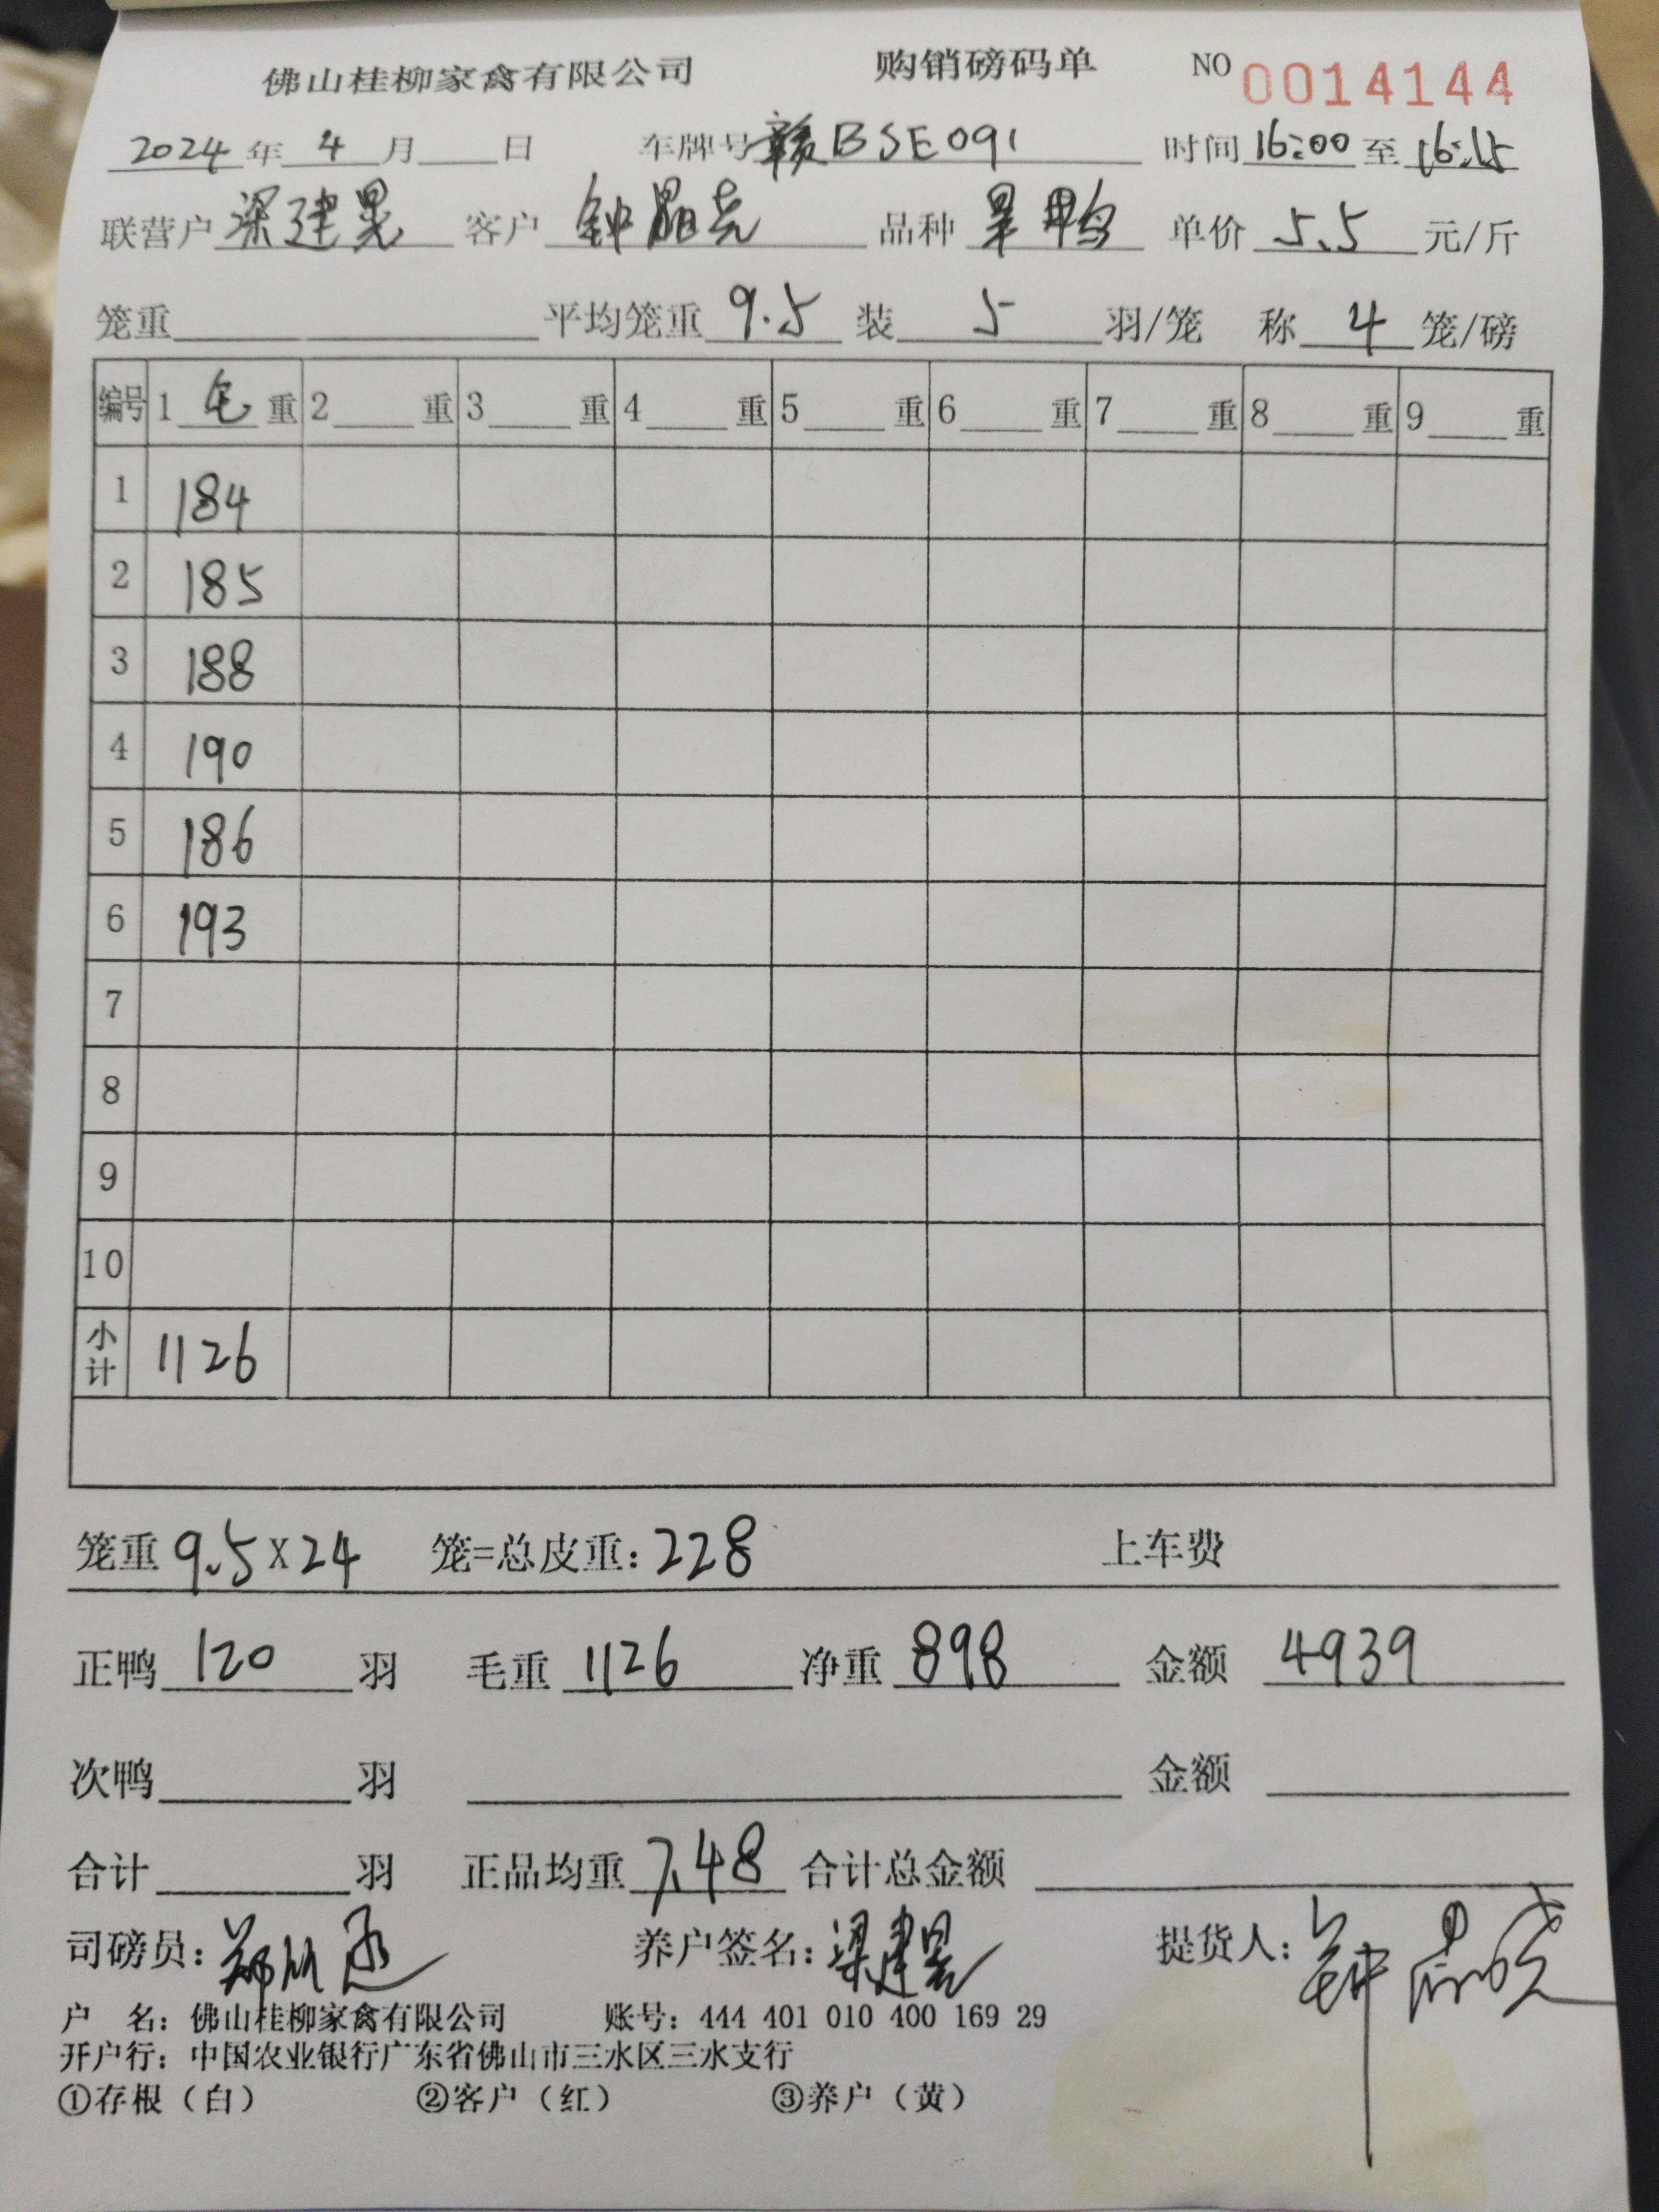 佛山桂柳家禽有限公司 购销磅码单 NO 0014144
2024 年 4 月 日 车牌号 赣BSE091 时间 16:00 至 16:15
联营户 梁建昊 客户 钟 品种 鸭 单价 5.5 元/斤
笼重 平均笼重 9.5 装 5 羽/笼 称 4 笼/磅
编号 1 毛 重 2 重 3 重 4 重 5 重 6 重 7 重 8 重 9 重
1 184
2 185
3 188
4 190
5 186
6 193
7
8
9
10
小计 1126
笼重 9.5 X 24 笼=总皮重: 228 上车费
正鸭 120 羽 毛重 1126 净重 898 金额 4939
次鸭 羽 金额
合计 羽 正品均重 7.48 合计总金额
司磅员: 郑 养户签名: 梁建昊 提货人: 钟
户 名: 佛山桂柳家禽有限公司 账号: 444 401 010 400 169 29
开户行: 中国农业银行广东省佛山市三水区三水支行
①存根(白) ②客户(红) ③养户(黄)